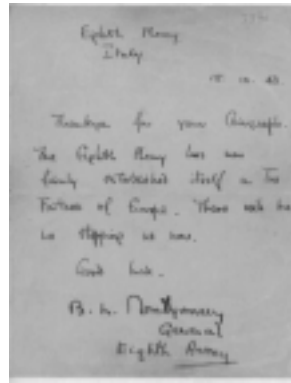 Eighth Army
Italy
10. 43.
Thank you for your
The Eighth Army has now
firmly established itself on the
Fortress of Europe. There will be
no stopping us now.
Good luck.
B. L. Montgomery
General
Eighth Army